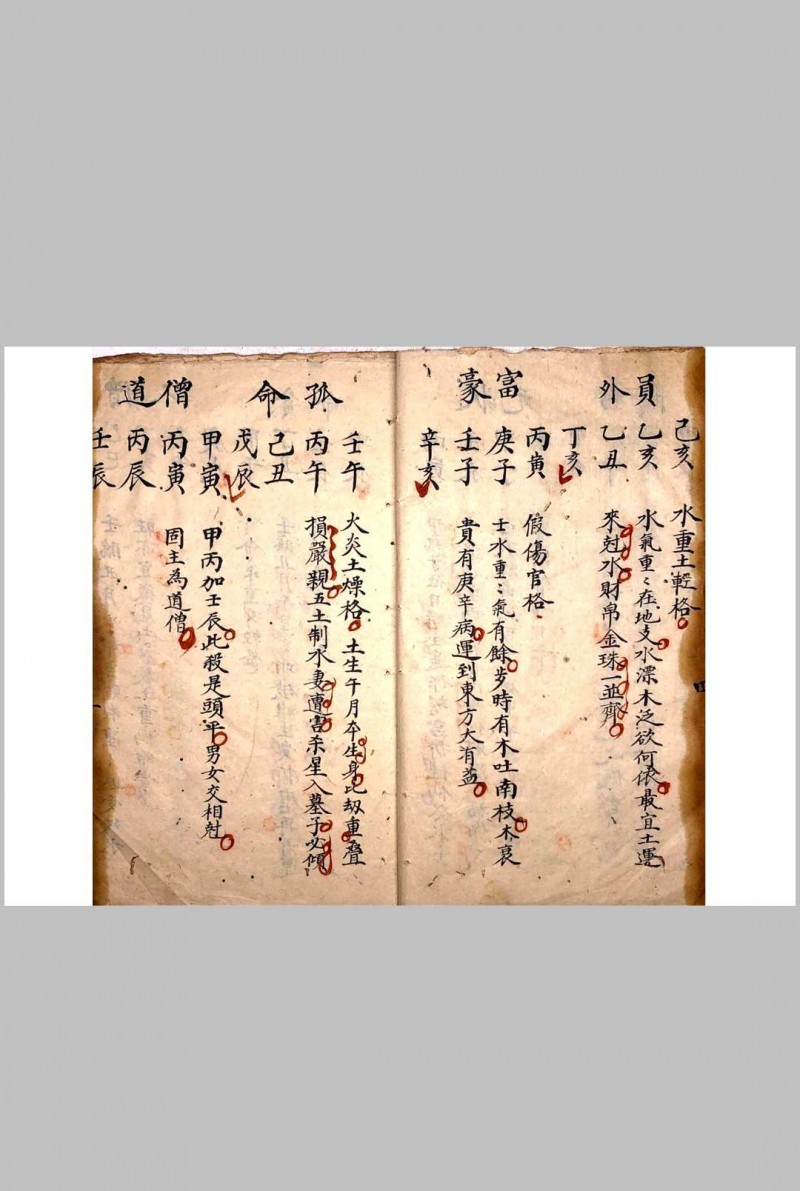 員外
己亥　水重土輕格
乙亥　水氣重〻在地支水漂木泛欲何依最宜土運
乙丑　來尅水財帛金珠一並齊
丁亥
富豪
丙寅　假傷官格
庚子　士水重〻氣有餘步時有木吐南枝木衰
壬子　貴有庚辛病運到東方大有益
辛亥
孤命
壬午　火炎土燥格　土生午月夲生身比刼重叠
丙午　損嚴親五土制水妻遭害杀星入墓子必傾
己丑
戊辰
僧道
甲寅　甲丙加壬辰此殺是頭平男女交相尅
丙寅　固主為道僧
丙辰
壬辰